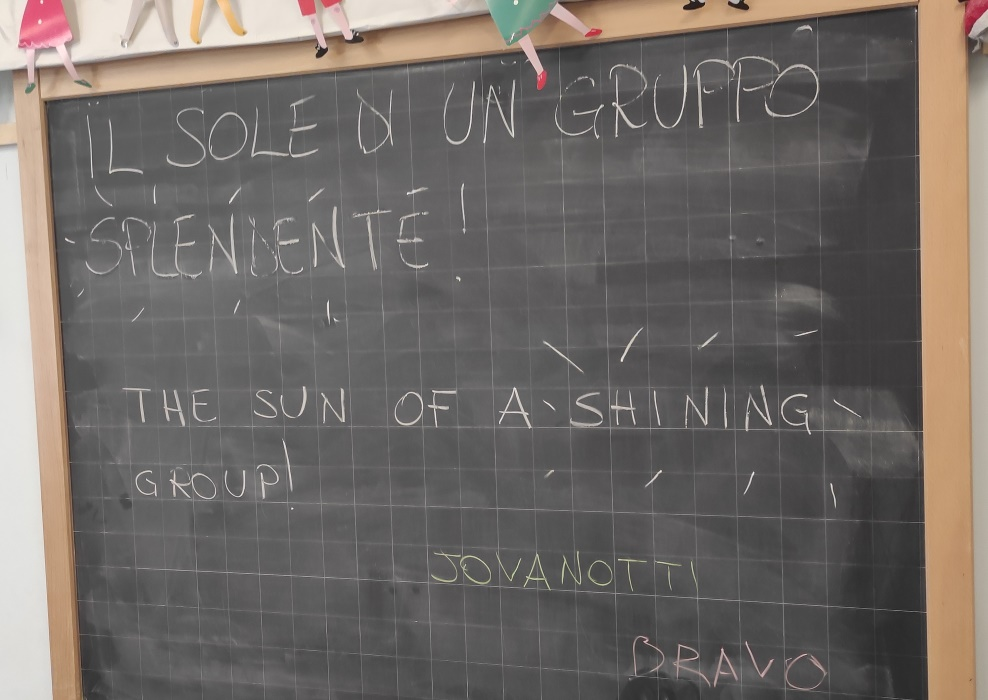 IL SOLE DI UN GRUPPO
SPLENDENTE!
THE SUN OF A SHINING
GROUP!
JOVANOTTI
BRAVO